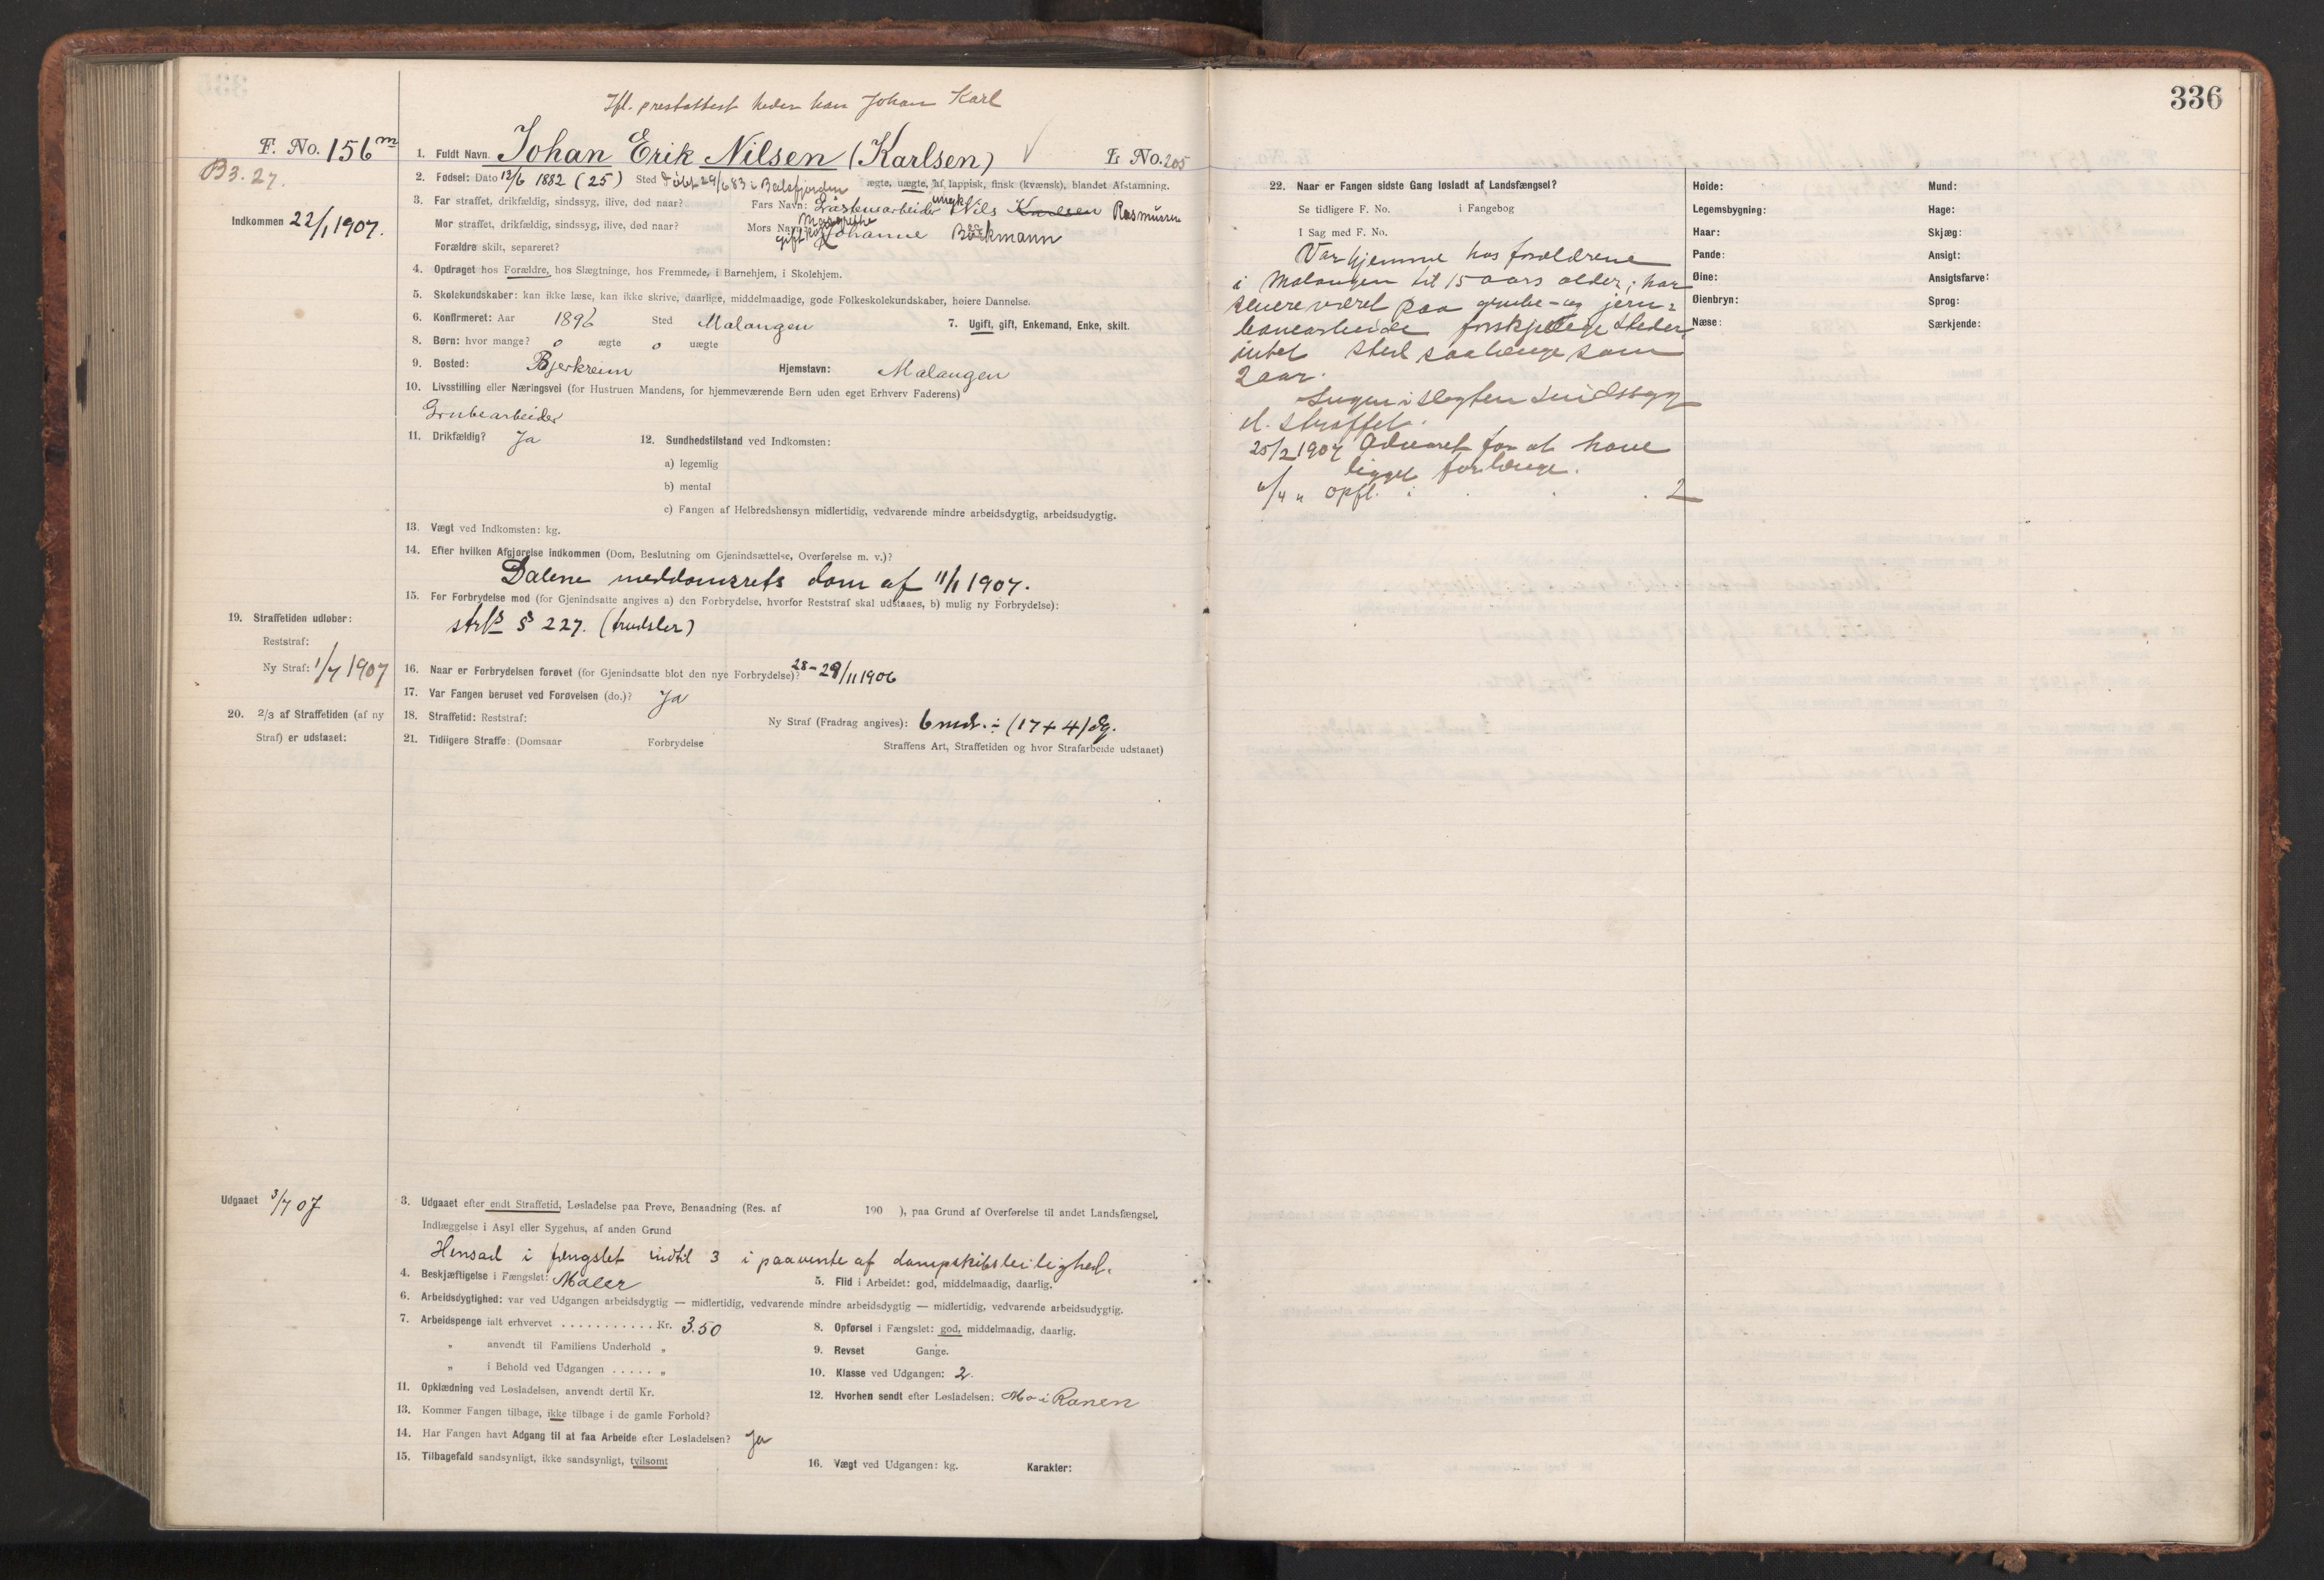 336
Ifl. prestattest heder han Johan Karl
F. No. 156 m
1. Fuldt Navn. Johan Erik Nilsen (Karlsen) L No. 205
B3. 27.
2. Fødsel: Dato 12/6 1882 (25) Sted Døbt 29/6 83 i Balsfjorden ægte, uægte, af lappisk, finsk (kvænsk), blandet Afstamning.
Indkommen 22/1 1907.
3. Far straffet, drikfældig, sindssyg, ilive, død naar? Fars Navn: ungk. Nils Karlsen Rasmussen
Mor straffet, drikfældig, sindssyg, ilive, død naar? Mors Navn: Margrethe Johanne Bäckmann
Forældre skilt, separeret?
4. Opdraget hos Forældre, hos Slægtninge, hos Fremmede, i Barnehjem, i Skolehjem.
5. Skolekundskaber: kan ikke læse, kan ikke skrive, daarlige, middelmaadige, gode Folkeskolekundskaber, høiere Dannelse.
6. Konfirmeret: Aar 1896 Sted Malangen 7. Ugift, gift, Enkemand, Enke, skilt.
8. Børn: hvor mange? 0 ægte 0 uægte
9. Bosted: Bjerkreim Hjemstavn: Malangen
10. Livsstilling eller Næringsvei (for Hustruen Mandens, for hjemmeværende Børn uden eget Erhverv Faderens)
Grubearbeider
11. Drikfældig? Ja 12. Sundhedstilstand ved Indkomsten:
a) legemlig
b) mental
c) Fangen af Helbredshensyn midlertidig, vedvarende mindre arbeidsdygtig, arbeidsudygtig.
13. Vægt ved Indkomsten: kg.
14. Efter hvilken Afgjørelse indkommen (Dom, Beslutning om Gjenindsættelse, Overførelse m. v.)?
Dalene meddomsrets dom af 11/1 1907.
15. For Forbrydelse mod (for Gjenindsatte angives a) den Forbrydelse, hvorfor Reststraf skal udstaaes, b) mulig ny Forbrydelse):
strl § 227. (trudsler)
19. Straffetiden udløber:
Reststraf:
Ny Straf: 1/7 1907
16. Naar er Forbrydelsen forøvet (for Gjenindsatte blot den nye Forbrydelse)? 28-29/11 1906
17. Var Fangen beruset ved Forøvelsen (do.)? Ja
20. 2/3 af Straffetiden (af ny
Straf) er udstaaet:
18. Straffetid: Reststraf: Ny Straf (Fradrag angives): 6 md. ÷ (17+4) dg.
21. Tidligere Straffe: (Domsaar Forbrydelse Straffens Art, Straffetiden og hvor Strafarbeide udstaaet)
Udgaaet 3/7 07
3. Udgaaet efter endt Straffetid, Løsladelse paa Prøve, Benaadning (Res. af 190 ), paa Grund af Overførelse til andet Landsfængsel,
Indlæggelse i Asyl eller Sygehus, af anden Grund
Hensad i fængslet indtil 3 i paavente af dampskibsleilighed.
4. Beskjæftigelse i Fængslet: Maler 5. Flid i Arbeidet: god, middelmaadig, daarlig.
6. Arbeidsdygtighed: var ved Udgangen arbeidsdygtig — midlertidig, vedvarende mindre arbeidsdygtig — midlertidig, vedvarende arbeidsudygtig.
7. Arbeidspenge ialt erhvervet . . . . . . . . . . . Kr. 3.50 8. Opførsel i Fængslet: god, middelmaadig, daarlig.
„ anvendt til Familiens Underhold „ 9. Revset Gange.
„ i Behold ved Udgangen . . . . . „ 10. Klasse ved Udgangen: 2.
11. Opklædning ved Løsladelsen, anvendt dertil Kr. 12. Hvorhen sendt efter Løsladelsen: Mo i Ranen
13. Kommer Fangen tilbage, ikke tilbage i de gamle Forhold?
14. Har Fangen havt Adgang til at faa Arbeide efter Løsladelsen? Ja
15. Tilbagefald sandsynligt, ikke sandsynligt, tvilsomt 16. Vægt ved Udgangen: kg. Karakter:
22. Naar er Fangen sidste Gang løsladt af Landsfængsel?
Se tidligere F. No. i Fangebog
I Sag med F. No.
Var hjemme hos forældrene
i Malangen til 15 aars alder; har
senere været paa grube- og jern=
banearbeide forskjellige steder,
intet sted saalænge som
2 aar.
Ingen i slegten sindssyg
el. straffet.
25/2 1907 Advaret for at have
ligget forlænge.
/4 " Opfl. i . . . 2
Høide:
Legemsbygning:
Haar:
Pande:
Øine:
Øienbryn:
Næse:
Mund:
Hage:
Skjæg:
Ansigt:
Ansigtsfarve:
Sprog:
Særkjende: